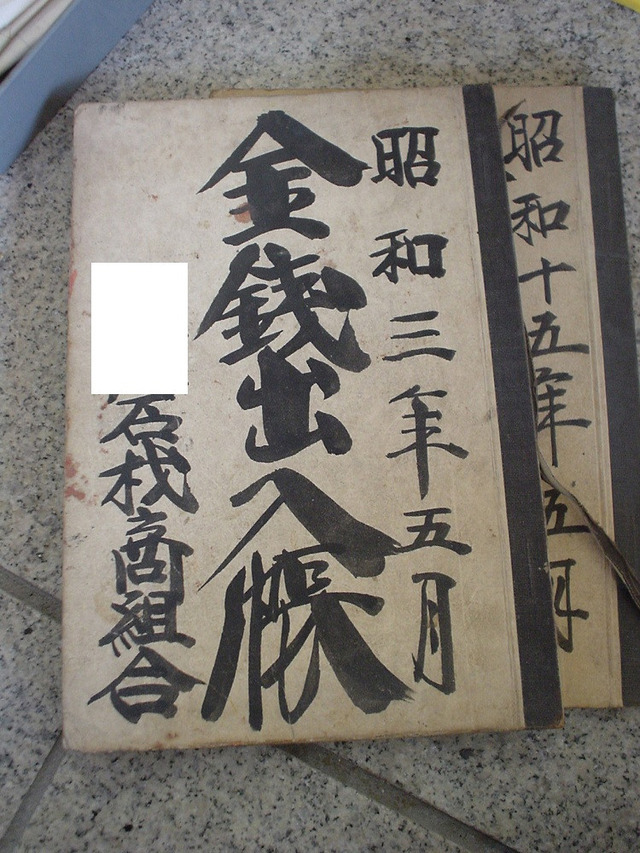 昭和十五年五月
昭和三年五月
金錢出入帳
石材商組合